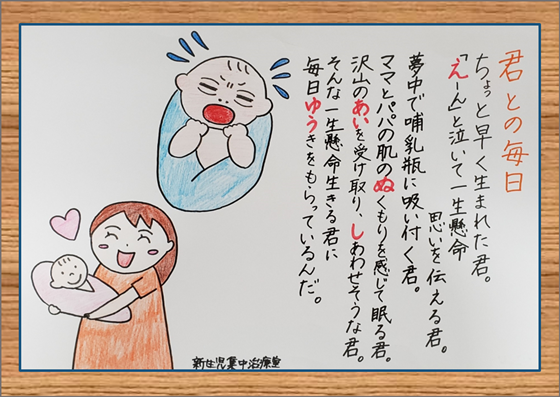 君との毎日
ちょっと早く生まれた君。
「えーん」と泣いて一生懸命
思いを伝える君。
夢中で哺乳瓶に吸い付く君。
ママとパパの肌のぬくもりを感じて眠る君。
沢山のあいを受け取り、しあわせそうな君。
そんな一生懸命生きる君に
毎日ゆうきをもらっているんだ。
新生児集中治療室